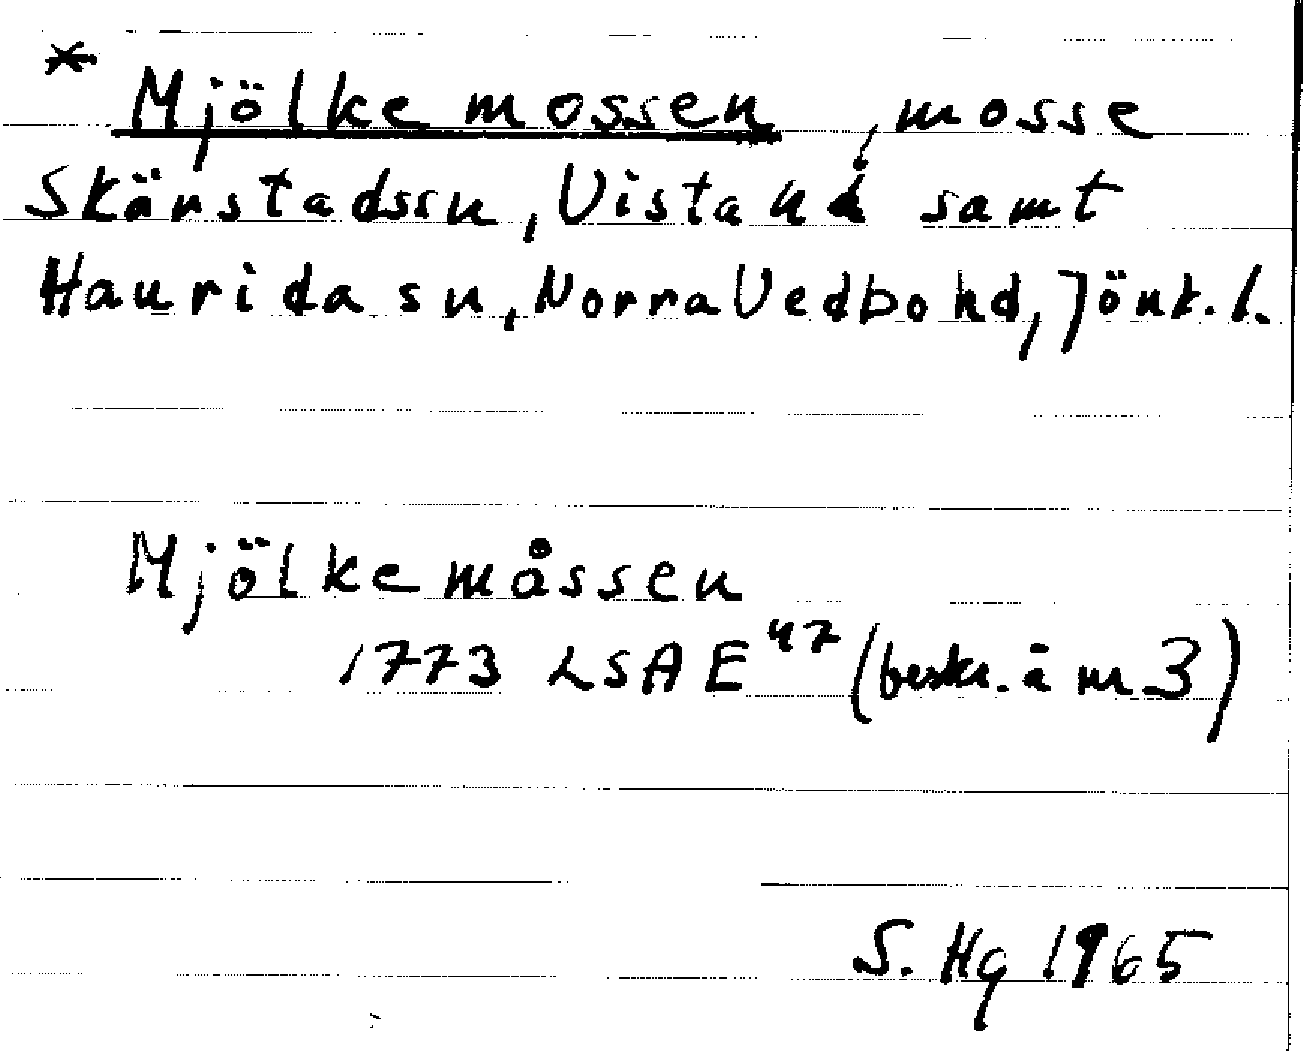 * Mjölkemossen, mosse
Skärstadssn, Vista hd samt
Haurida sn, Norra Vedbo hd, Jönk. l.
Mjölkemåssen
1773 LSA E 47 (beskr. ä nr 3)
S. Hg 1965